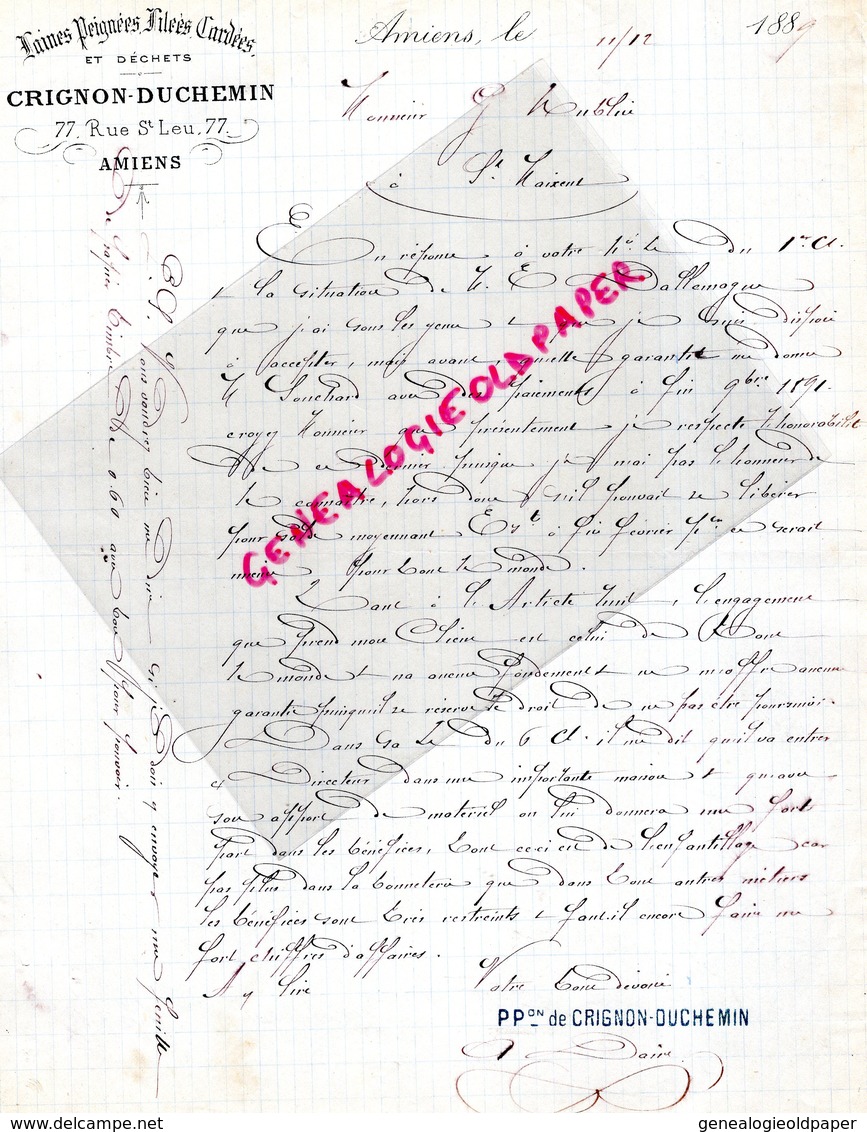 Laines Peignées, Filées, Cardées,
ET DÉCHETS
CRIGNON-DUCHEMIN
77, Rue St Leu, 77.
AMIENS
Amiens, le 11/12 1889
Monsieur G
à St Maixent
En réponse à votre hée Le du 1er Ct.
& la situation de M. E Dallemagne
que j'ai sous les yeux & que je suis disposé
à accepter, mais avant, quelle garantie me donne
M Souchard avec des paiements à fin 9bre 1891.
croyez Monsieur que présentement je respecte l'honorabilité
de ce dernier puisque je n'ai pas l'honneur de
le connaître, hors donc s'il pouvait se libérer
pour solde moyennant Es/t à fin février pin ce serait
mieux pour tout le monde.
Quant à l'Article huit, l'engagement
que prend mon Client est celui de tout
le monde & n'a aucun fondement & ne m'offre aucune
garantie puisqu'il se réserve le droit de ne pas être poursuivi.
Dans sa Le du 6 Ct. il me dit qu'il va entrer
Directeur dans une importante maison & qu'avec
son apport de matériel on lui donnera une forte
part dans les bénéfices, tout ceci est de l'enfantillage car
pas plus dans la bonneterie que dans tout autres métiers
les bénéfices sont très restreints & faut-il encore faire un
fort chiffres d'affaires.
A vous lire Votre tout dévoué
PPon de CRIGNON-DUCHEMIN
A Daire
P.S. Vous voudrez bien me dire si je dois y envoyer une feuille
de papier timbre de 0.60 avec bon pour pouvoir.
GENEALOGIEOLDPAPER
www.delcampe.net
genealogieoldpaper